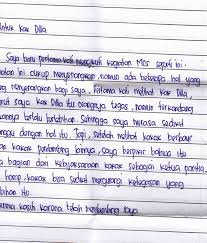 ntuk Kak Dilla
Saya baru pertama kali mengikuti kegiatan Mos seperti ini.
atan ini cukup menyenangkan, namun ada beberapa hal yang
ng menyenangkan bagi saya. Pertama kali melihat Kak Dilla,
rut saya Kak Dilla itu orangnya tegas, namun terkadang
annya terlalu berlebihan. Sehingga saya merasa sedikit
nggu dengan hal itu. Tapi, setelah melihat kakak berbaur
an kakak pembimbing lainnya, saya berpikir bahwa itu
a bagian dari kebijaksanaan kakak sebagai ketua panitia.
harap, kakak bisa sedikit mengurangi ketegasan yang
bihan itu.
erima kasih karena telah membimbing saya